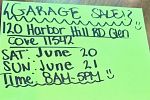 GARAGE SALE!
120 Harbor Hill RD Glen
Cove 11542
SAT: June 20
SUN: June 21
Time: 8AM-5PM